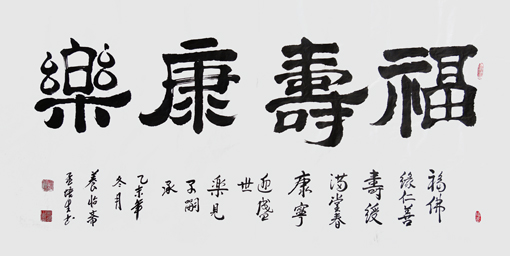 福壽康樂
福佛
緣仁善
壽綬
滿堂春
康寧
迎盛
世
樂見
子嗣
承
乙未年
冬月
養怡斋